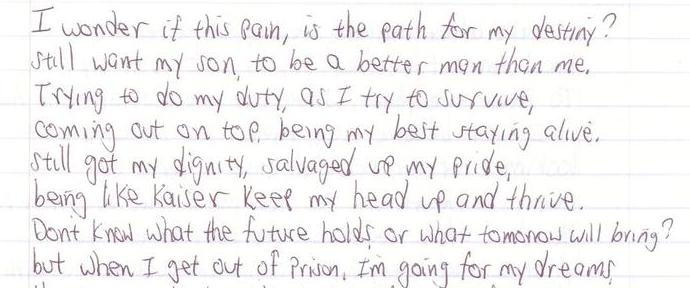 I wonder if this pain, is the path for my destiny?
still want my son, to be a better man than me.
Trying to do my duty, as I try to survive,
coming out on top, being my best staying alive.
still got my dignity, salvaged up my pride,
being like Kaiser keep my head up and thrive.
Dont know what the future holds, or what tomorrow will bring?
but when I get out of Prison, Im going for my dreams,